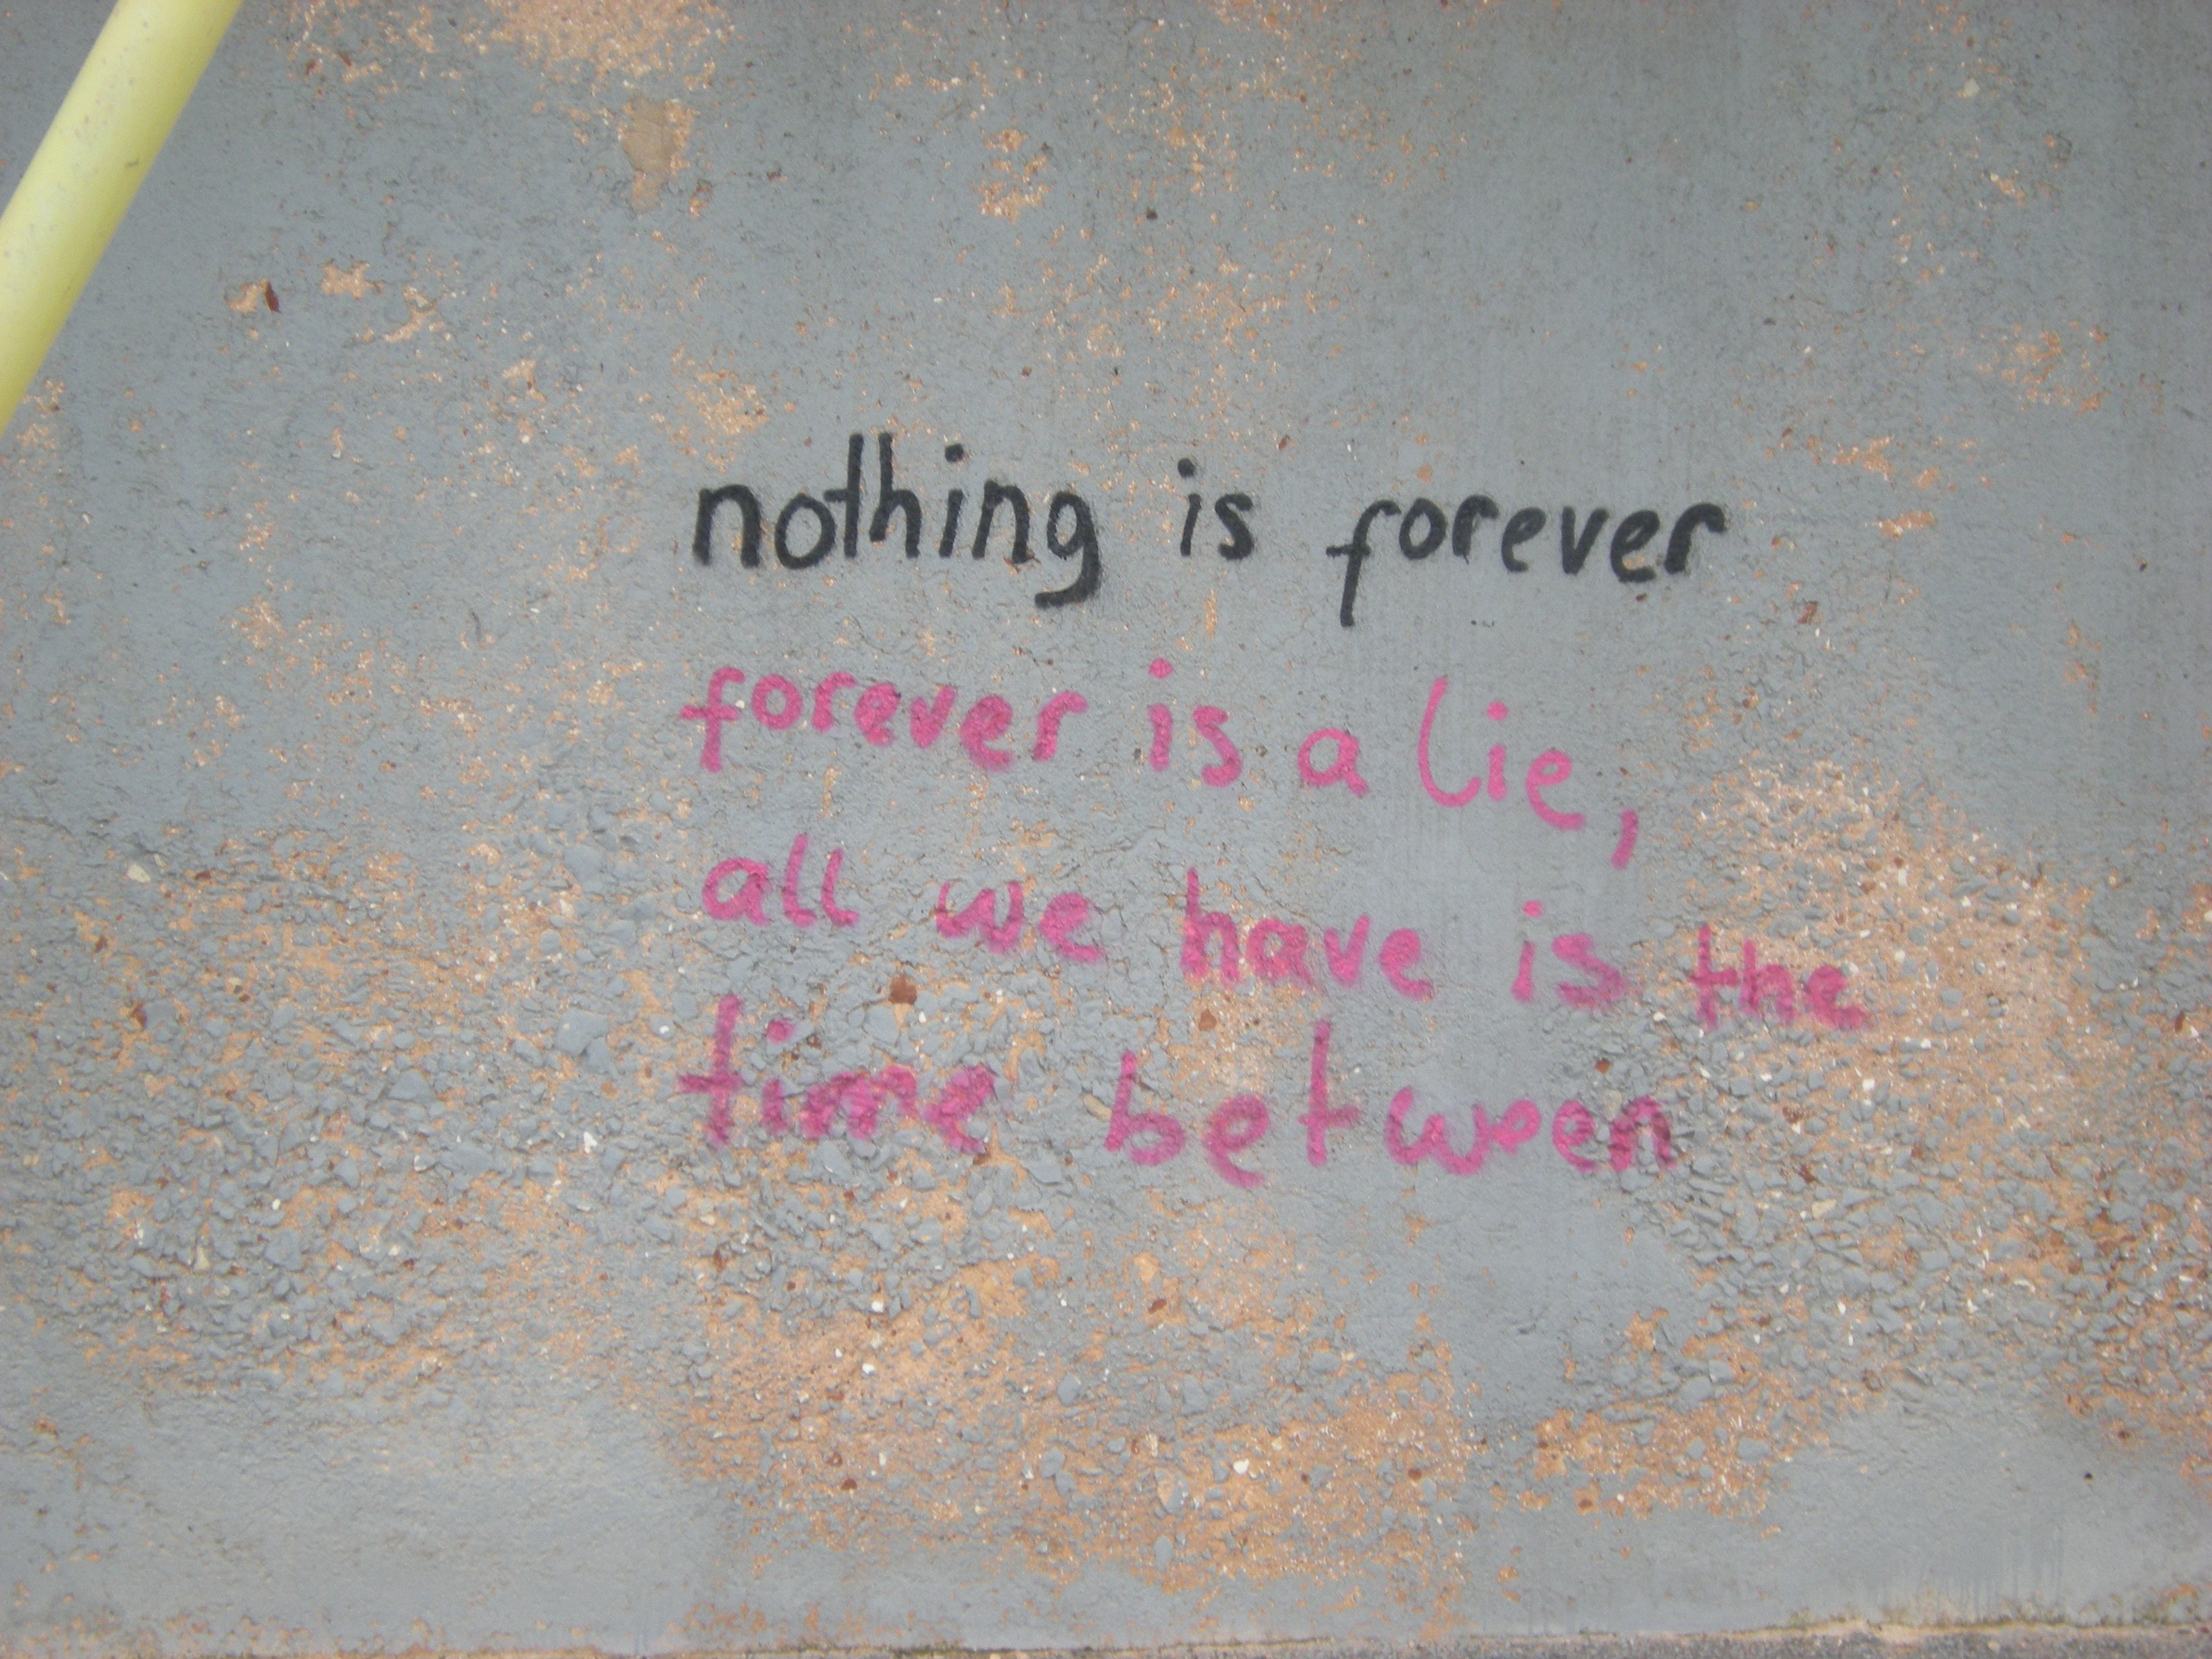 nothing is forever
forever is a lie,
all we have is the
time between